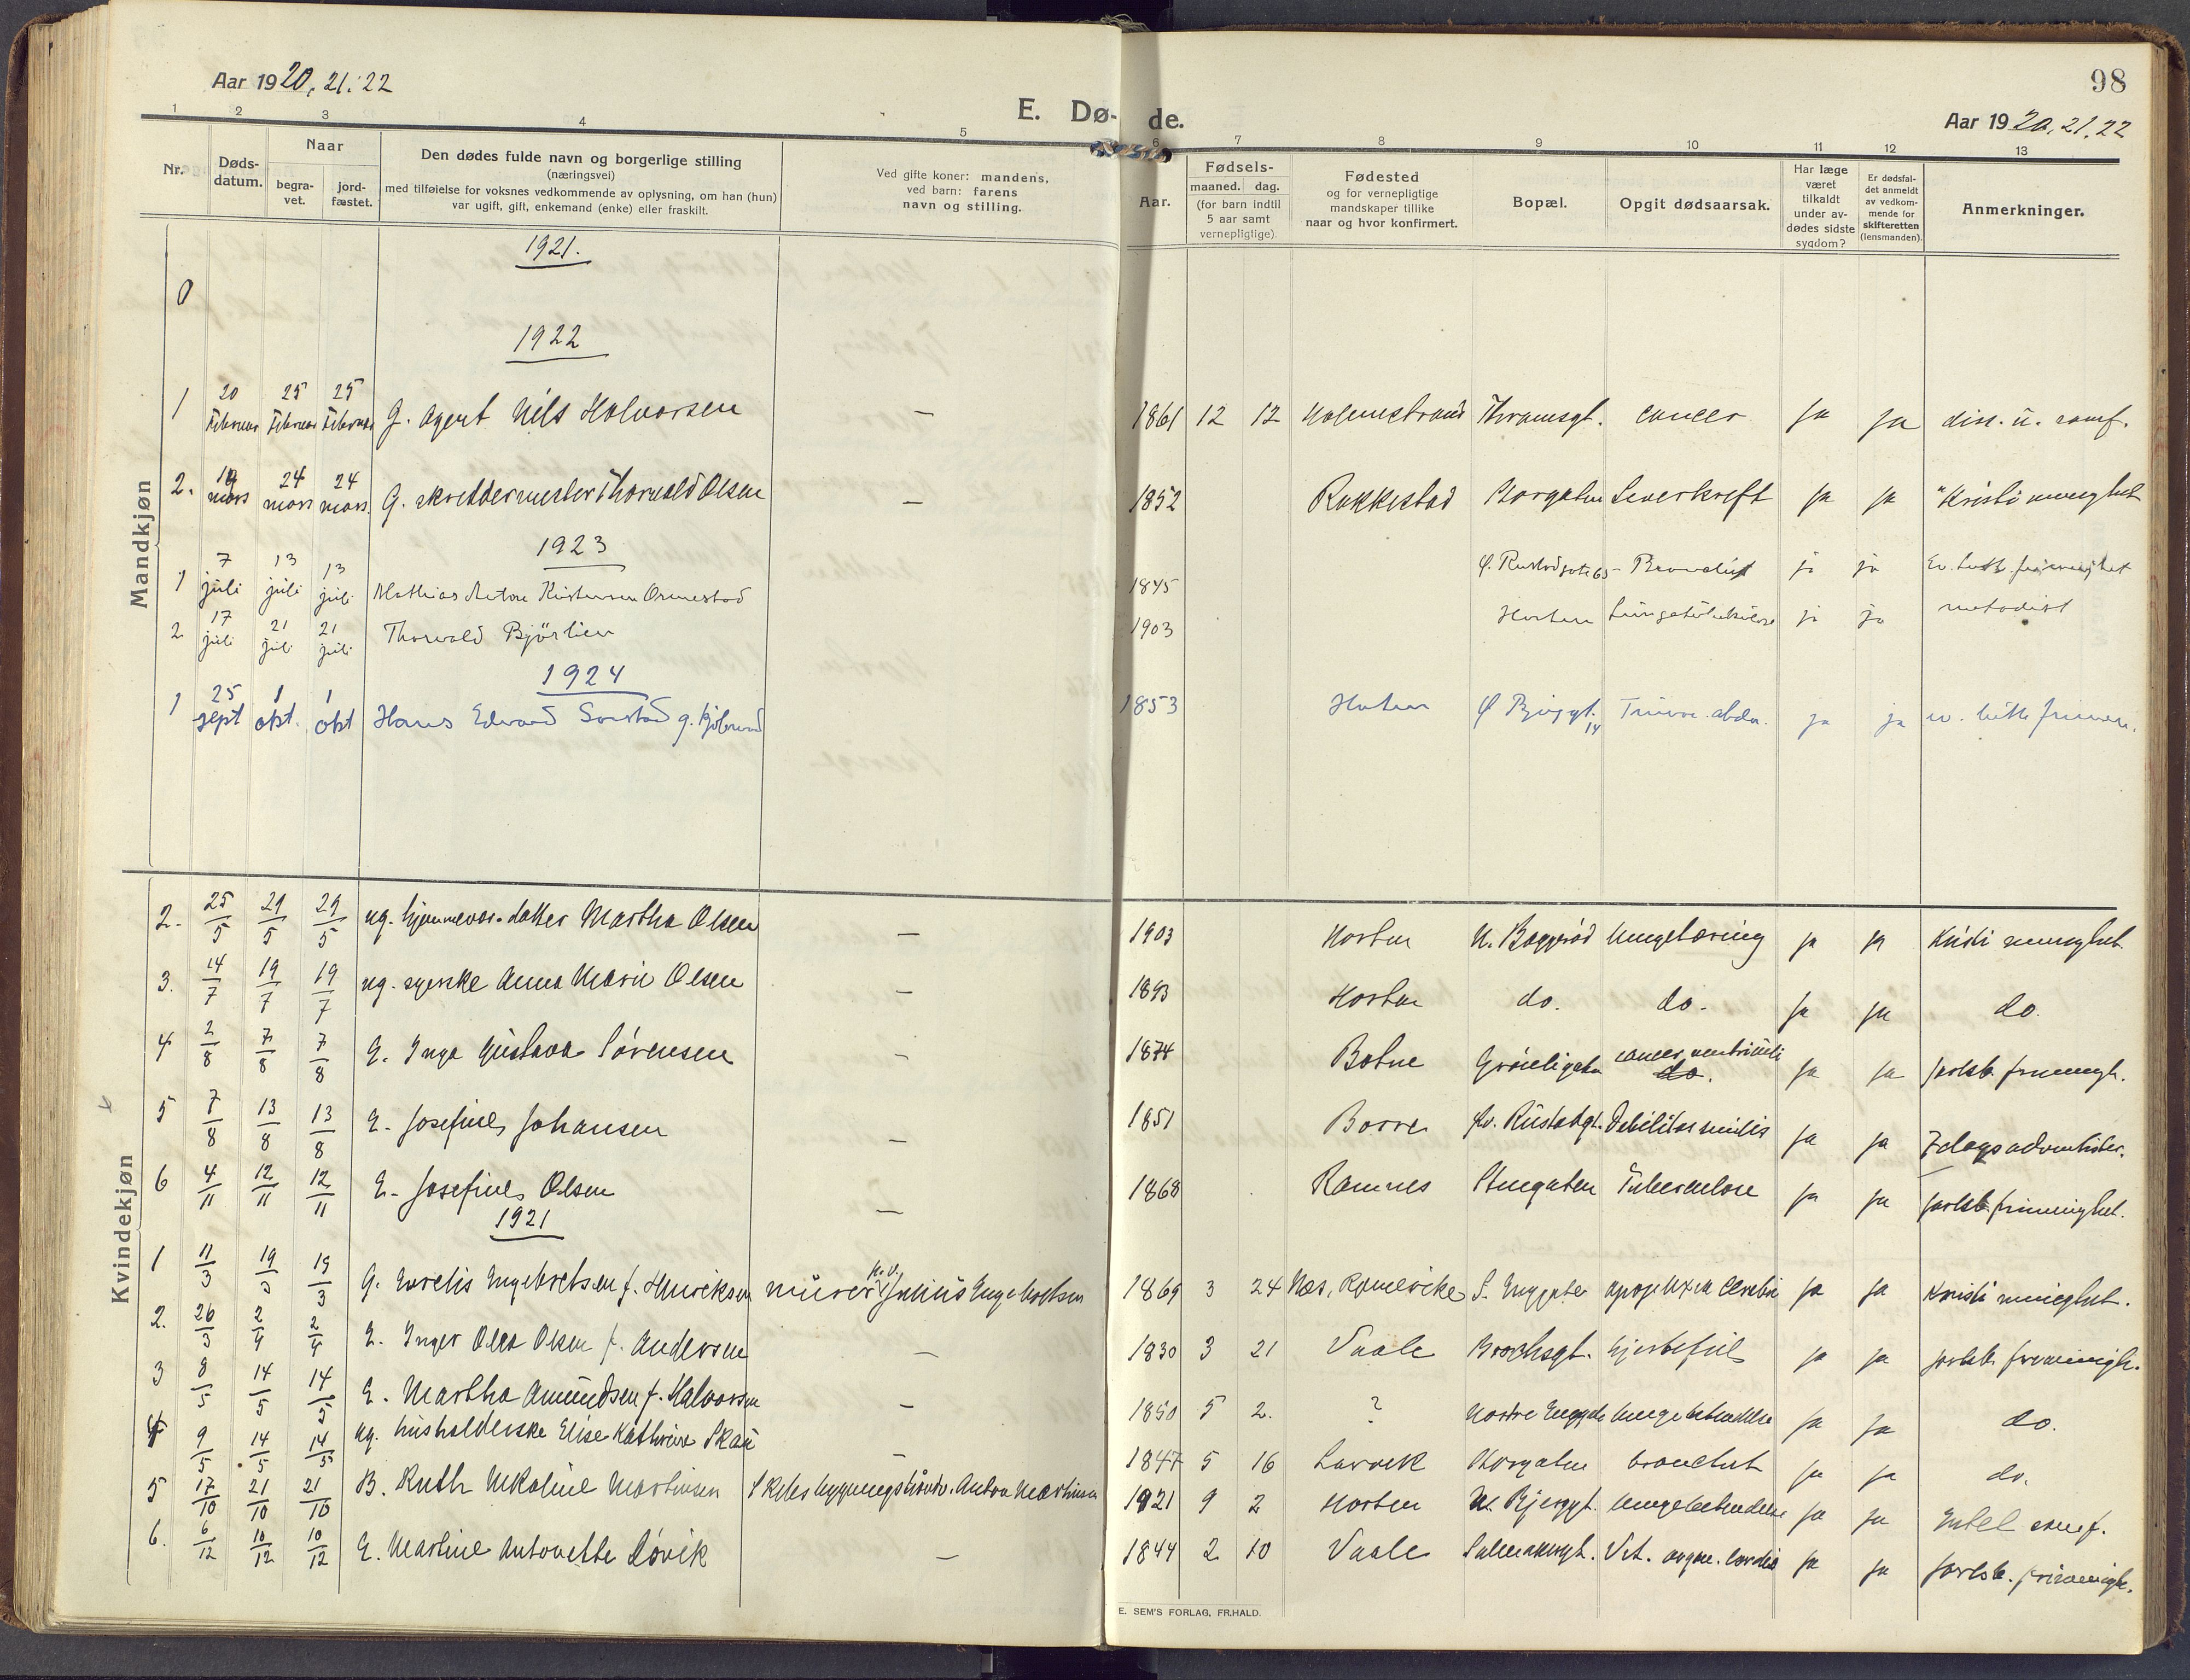 Aar 1920, 21, 22
98
E. Dø- de.
Aar 1920, 21, 22
1 2 3 4 5 6 7 8 9 10 11 12 13
Nr.
Døds-
datum.
Naar
begra-
vet.
jord-
fæstet.
Den dødes fulde navn og borgerlige stilling
(næringsvei)
med tilføielse for voksnes vedkommende av oplysning, om han (hun)
var ugift, gift, enkemand (enke) eller fraskilt.
Ved gifte koner: mandens,
ved barn: farens
navn og stilling.
Aar.
Fødsels-
maaned. dag.
(for barn indtil
5 aar samt
vernepligtige).
Fødested
og for vernepligtige
mandskaper tillike
naar og hvor konfirmert.
Bopæl.
Opgit dødsaarsak.
Har læge
været
tilkaldt
under av-
dødes sidste
sygdom?
Er dødsfal-
det anmeldt
av vedkom-
mende for
skifteretten
(lensmanden).
Anmerkninger.
Mandkjøn
1921.
0
1922
1 20 Februar 25 Februar 25 Februar G. Agent Nils Halvorsen — 1861 12 12 Holmestrand Thranesgt. cancer ja ja diss. u. samf.
2. 19 mars 24 mars 24 mars. G. skreddermester Thorvald Olsen — 1852 Rakkestad Storgaten Leverkreft ja ja "Kristi menighet
1923
1 7 juli 13 juli 13 juli Mathias Anton Kristensen Ormestad 1845 Ø. Rustadgate 65 ja ja Ev. luth. frimenighet
2 17 juli 21 juli 21 juli Thorvald Bjørlien 1903 Horten Lungetuberkulose ja ja metodist
1924
1 25 sept 1 okt. 1 okt Hans Edvard g. 1853 Horten Ø 14 ja ja ev. luth.
Kvindekjøn
2. 25/5 29/5 29/5 ug. hjemmevær. datter Martha Olsen — 1903 Horten N. Baggerød lungetæring ja ja Kristi menighet.
3. 14/7 19/7 19/7 ug. syerske Anna Marie Olsen — 1893 Horten do. do. ja ja do.
4 2/8 7/8 7/8 E. Inga Gustava Sørensen — 1874 Botne Grønligaten cancer ventriculi do. ja ja Jarlsb. frimenigh.
5 7/8 13/8 13/8 E. Josefine Johansen — 1851 Borre Øv. Rustadgt. Debilitas senilis ja ja 7 dags adventister.
6 4/11 12/11 12/11 E. Josefine Olsen — 1868 Ramnes Stengaten Tuberculose ja ja Jarlsb. frimenighet.
1921
1 11/3 19/3 19/3 G. Engebretsen f. Henriksen murer H. V. Julius Engebretsen 1869 3 24 Nes, Romerike S. Enggate apoplexia cerebri ja ja Kristi menighet.
2. 26/3 2/4 2/4 E. Inger Olea Olsen f. Andersen — 1830 3 21 Vaale Brochsgt. hjertefeil ja ja Jarlsb. frimenigh.
3 8/5 14/5 14/5 E. Martha Amundsen f. Halvorsen — 1850 5 2. ? Nordre Enggate lungebetendelse ja ja do.
4 9/5 14/5 14/5 ug. husholderske Elise Kathrine Skau — 1847 5 16 Larvik Storgaten bronchit ja ja do.
5 17/10 21/10 21/10 B. Ruth Nikoline Martinsen Skibsbygningshåndv. Anton Martinsen 1921 9 2 Horten N. Bjerggt. lungebetendelse ja ja Intet samf.
6. 6/12 10/12 10/12 E. Martine Antonette Løvik — 1844 2 10 Vaale Vit. organ. cordis ja ja Jarlsb. frimenigh.
E. SEM'S FORLAG, FR.HALD.